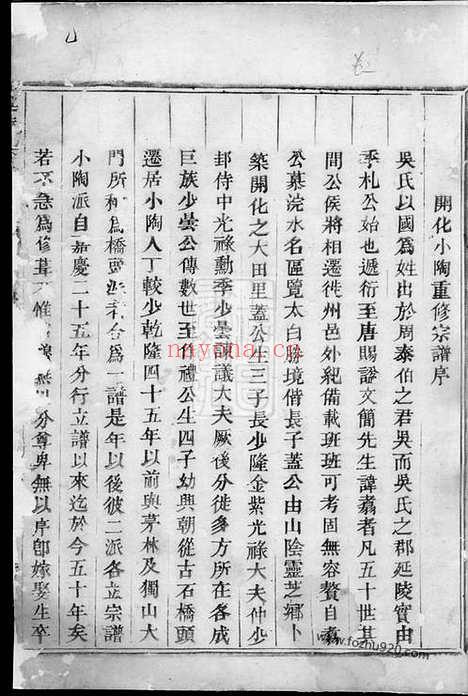 開化小陶重修宗譜序
吳氏以國爲姓出於周泰伯之君吳而吳氏之郡延陵實由
季札公始也遞衍至唐賜諡文簡先生諱翥者凡五十世其
間公侯將相遷徙州邑外紀備載班班可考固無容贅自翥
公慕浣水名區覽太白勝境偕長子蓋公由山陰靈芝鄉卜
築開化之大田里蓋公生三子長少隆金紫光祿大夫仲少
邽侍中光祿勳季少曇諫議大夫厥後分徙多方所在各成
巨族少曇公傳數世至伯禮公生四子幼興朝從古石橋頭
遷居小陶人丁較少乾隆四十五年以前與茅林及獨山大
門所和爲橋合爲一譜是年以後彼二派各立宗譜
小陶派自嘉慶二十五年分行立譜以來迄於今五十年矣
若不急爲修葺惟分尊卑無以序卽嫁娶生卒
nayona.cn
www.fozhu920.com